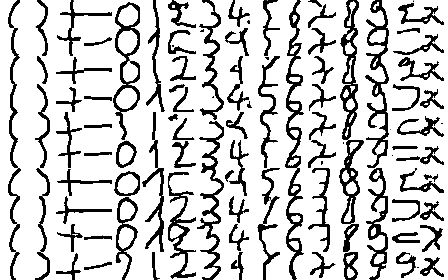 ( ) + - 0 1 2 3 4 5 6 7 8 9 = x
( ) + - 0 1 2 3 4 5 6 7 8 9 = x
( ) + - 0 1 2 3 4 5 6 7 8 9 = x
( ) + - 0 1 2 3 4 5 6 7 8 9 = x
( ) + - 1 2 3 4 5 6 7 8 9 = x
( ) + - 0 1 2 3 4 5 6 7 8 9 = x
( ) + - 0 1 2 3 4 5 6 7 8 9 = x
( ) + - 0 1 2 3 4 5 6 7 8 9 = x
( ) + - 0 1 2 3 4 5 6 7 8 9 = x
( ) + - 1 2 3 4 5 6 7 8 9 = x